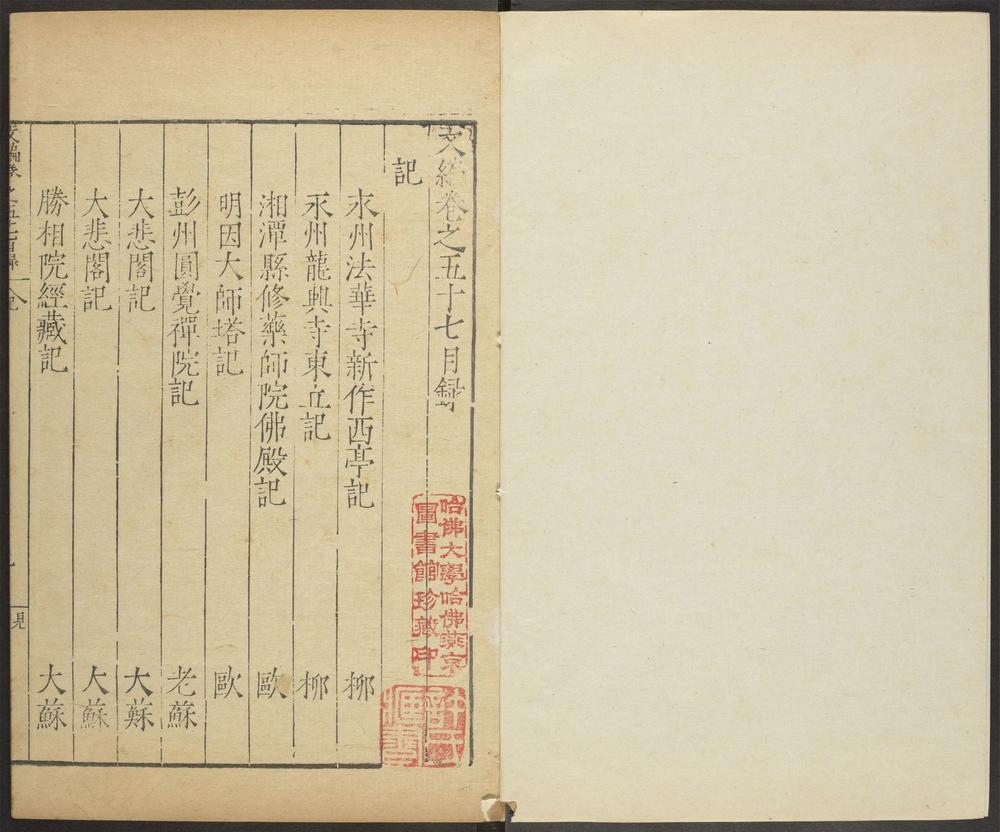 文編卷之五十七目録
記
永州法華寺新作西亭記 柳
永州龍興寺東丘記 柳
湘潭縣修藥師院佛殿記 歐
明因大師塔記 歐
彭州圓覺禪院記 老蘇
大悲閣記 大蘇
大悲閣記 大蘇
勝相院經藏記 大蘇
哈佛大學哈佛燕京
圖書館珍藏印